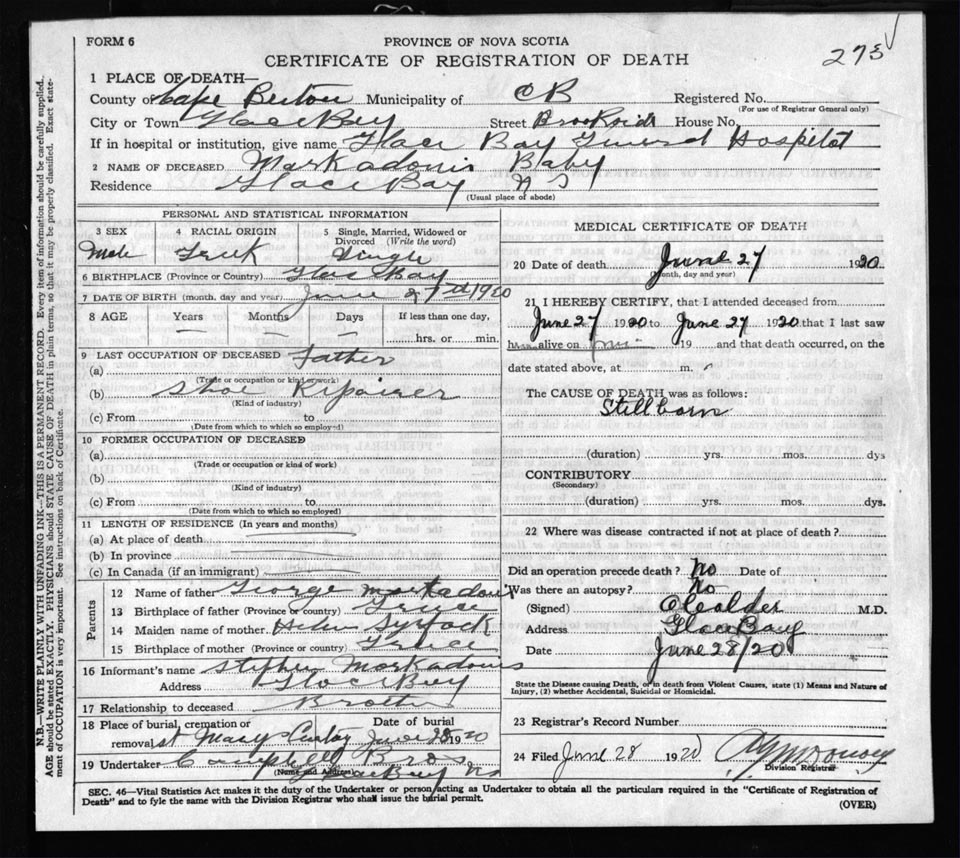 FORM 6
PROVINCE OF NOVA SCOTIA
CERTIFICATE OF REGISTRATION OF DEATH
273
1 PLACE OF DEATH—
County of Cape Breton Municipality of CB Registered No.
(For use of Registrar General only)
City or Town Glace Bay Street Brookside House No.
If in hospital or institution, give name Glace Bay General Hospital
2 NAME OF DECEASED Markadonis Baby
Residence Glace Bay N S
(Usual place of abode)
PERSONAL AND STATISTICAL INFORMATION
3 SEX 4 RACIAL ORIGIN 5 Single, Married, Widowed or Divorced (Write the word)
Male Greek Single
6 BIRTHPLACE (Province or Country) Glace Bay
7 DATE OF BIRTH (month, day and year) June 27th 1920
8 AGE Years Months Days If less than one day,
hrs. or min.
9 LAST OCCUPATION OF DECEASED Father
(a)
(Trade or occupation or kind of work)
(b) Shoe Repairer
(Kind of industry)
(c) From to
(Date from which to which so employed)
10 FORMER OCCUPATION OF DECEASED
(a)
(Trade or occupation or kind of work)
(b)
(Kind of industry)
(c) From to
(Date from which to which so employed)
11 LENGTH OF RESIDENCE (In years and months)
(a) At place of death
(b) In province
(c) In Canada (if an immigrant)
Parents
12 Name of father George Markadonis
13 Birthplace of father (Province or country) Greece
14 Maiden name of mother Helen
15 Birthplace of mother (Province or country) Greece
16 Informant's name Stephen Markadonis
Address Glace Bay
17 Relationship to deceased Brother
18 Place of burial, cremation or removal Date of burial
St Mary June 28 1920
19 Undertaker Campbell Bros
(Name and Address) Glace Bay NS
MEDICAL CERTIFICATE OF DEATH
20 Date of death June 27 1920
(Month, day and year)
21 I HEREBY CERTIFY, that I attended deceased from
June 27 1920 to June 27 1920 that I last saw
h alive on 19 and that death occurred, on the
date stated above, at m.
The CAUSE OF DEATH was as follows:
Stillborn
(duration) yrs. mos. dys
CONTRIBUTORY
(Secondary)
(duration) yrs. mos. dys.
22 Where was disease contracted if not at place of death?
Did an operation precede death? No Date of
Was there an autopsy? No
(Signed) M.D.
Address Glace Bay
Date June 28/20
State the Disease causing Death, or in death from Violent Causes, state (1) Means and Nature of Injury, (2) whether Accidental, Suicidal or Homicidal.
23 Registrar's Record Number
24 Filed June 28 1920
Division Registrar
SEC. 46—Vital Statistics Act makes it the duty of the Undertaker or person acting as Undertaker to obtain all the particulars required in the "Certificate of Registration of
Death" and to fyle the same with the Division Registrar who shall issue the burial permit.
(OVER)
N.B.—WRITE PLAINLY WITH UNFADING INK—THIS IS A PERMANENT RECORD. Every item of information should be carefully supplied.
AGE should be stated EXACTLY. PHYSICIANS should STATE CAUSE OF DEATH in plain terms, so that it may be properly classified. Exact state-
ment of OCCUPATION is very important. See instructions on back of Certificate.